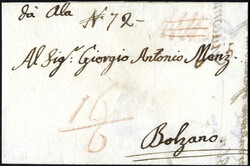 da Ala
N° 72-
Al Sig.r Giorgio Antonio Menz
16/6
Bolzano